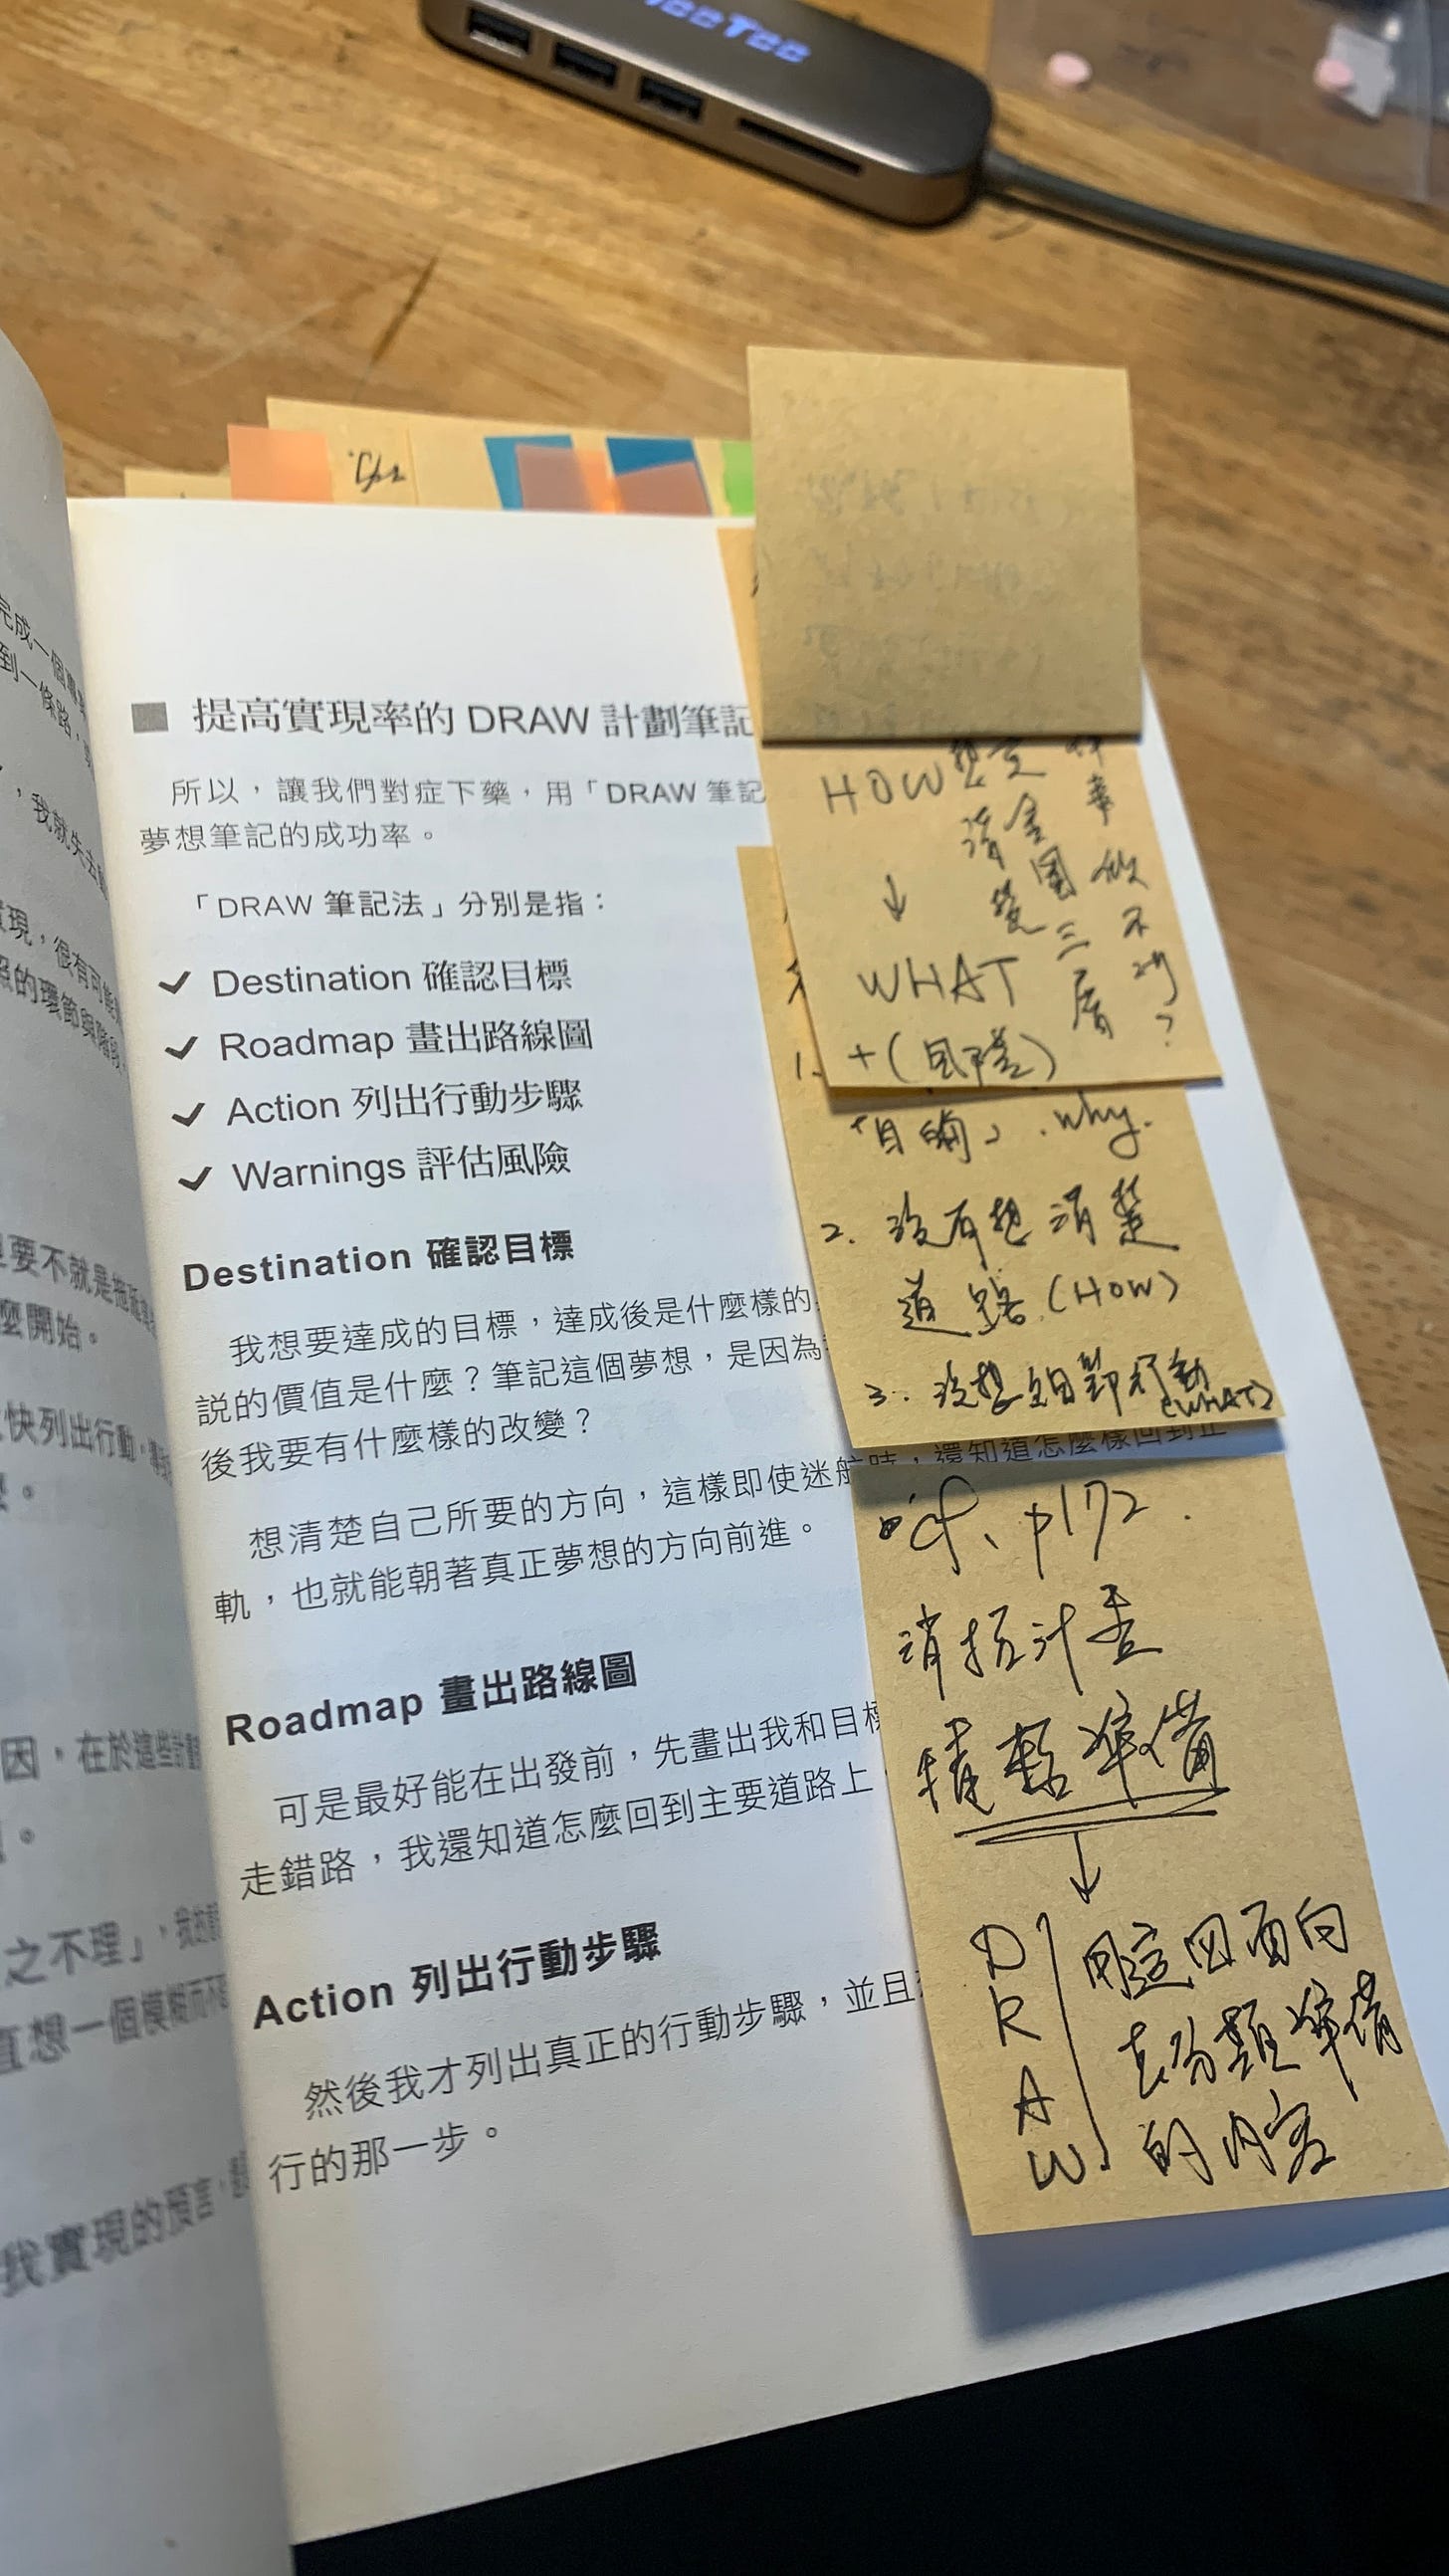 ■ 提高實現率的 DRAW 計劃筆記
所以，讓我們對症下藥，用「DRAW 筆記
夢想筆記的成功率。
「DRAW 筆記法」分別是指：
✓ Destination 確認目標
✓ Roadmap 畫出路線圖
✓ Action 列出行動步驟
✓ Warnings 評估風險
Destination 確認目標
我想要達成的目標，達成後是什麼樣的
説的價值是什麼？筆記這個夢想，是因為
後我要有什麼樣的改變？
想清楚自己所要的方向，這樣即使迷航時，還知道怎麼樣回到正
軌，也就能朝著真正夢想的方向前進。
Roadmap 畫出路線圖
可是最好能在出發前，先畫出我和目標
走錯路，我還知道怎麼回到主要道路上
Action 列出行動步驟
然後我才列出真正的行動步驟，並且
行的那一步。
完成一個
到一條路，
，我就失去
實現，很有可能
的環節與階段
要不就是拖
麼開始。
快列出行動，
因，在於這些計劃
之不理」，我的
直想一個模糊而不
我實現的預言，
HOW
↓
WHAT
+(風險)
想清楚
黃金圈三層
事做不好？
「目的」.why.
2. 沒有想清楚
道路(HOW)
3. 沒想細節行動
(WHAT)
cf. p172.
消極計畫
積極準備
↓
D
R
A
W
用這四面向
去分類準備
的內容